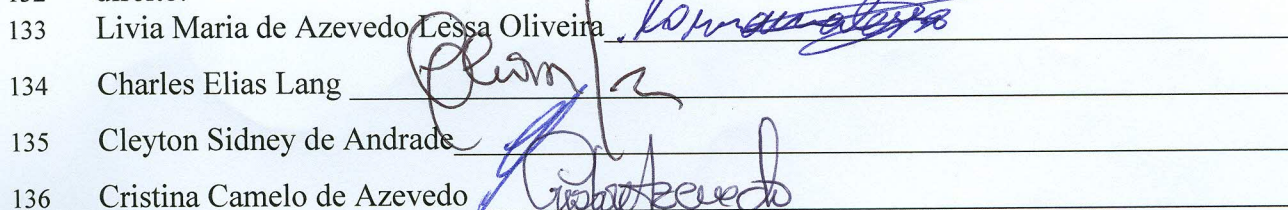 132 direito.
133 Livia Maria de Azevedo Lessa Oliveira
134 Charles Elias Lang
135 Cleyton Sidney de Andrade
136 Cristina Camelo de Azevedo Cristina Azevedo